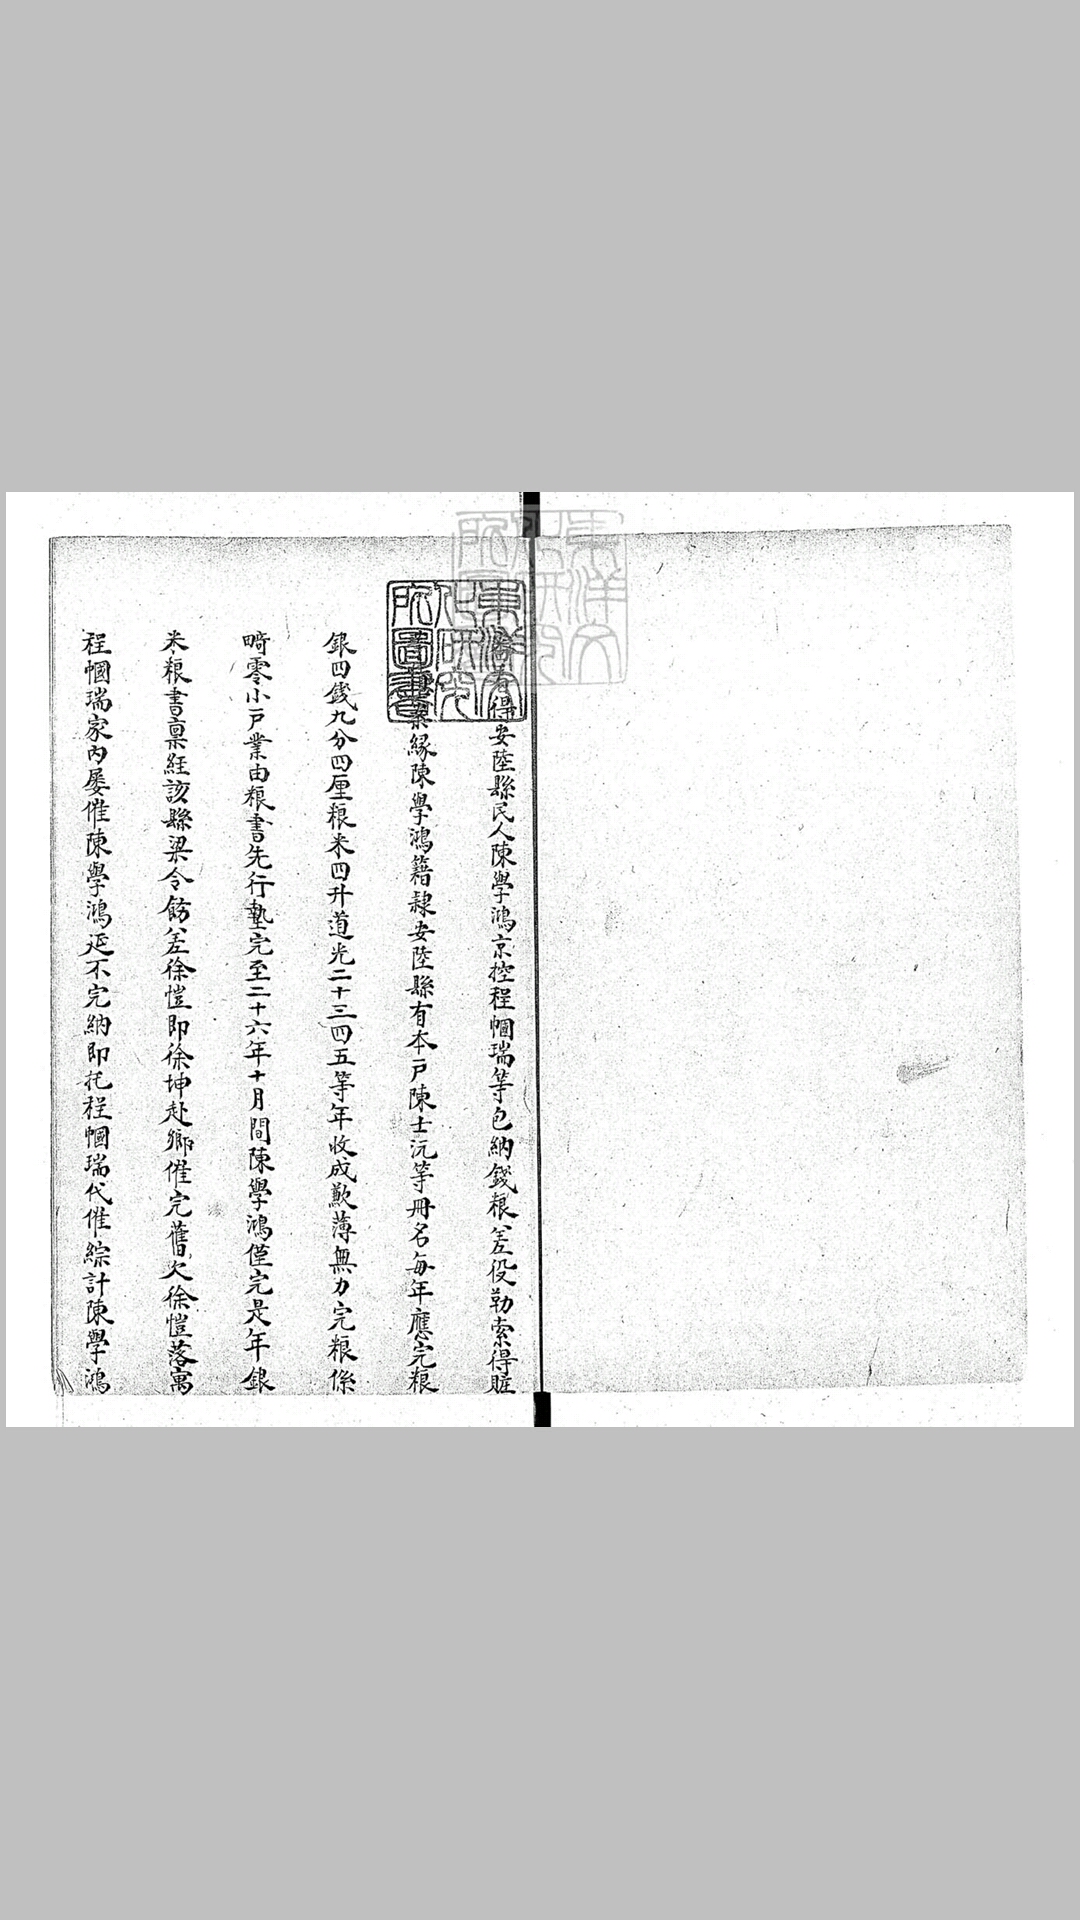 審看得安陸縣民人陳學鴻京控程幗瑞等包納錢粮差役勒索得賍
一案緣陳學鴻籍隸安陸縣有本戸陳士沅等冊名每年應完粮
銀四錢九分四厘粮米四升道光二十三四五等年收成歉薄無力完粮係
畸零小戸業由粮書先行墊完至二十六年十月間陳學鴻僅完是年銀
米粮書稟經該縣梁令飭差徐愷即徐坤赴鄉催完舊欠徐愷落寓
程幗瑞家內屡催陳學鴻延不完納即托程幗瑞代催綜計陳學鴻
東洋文化研究所圖書